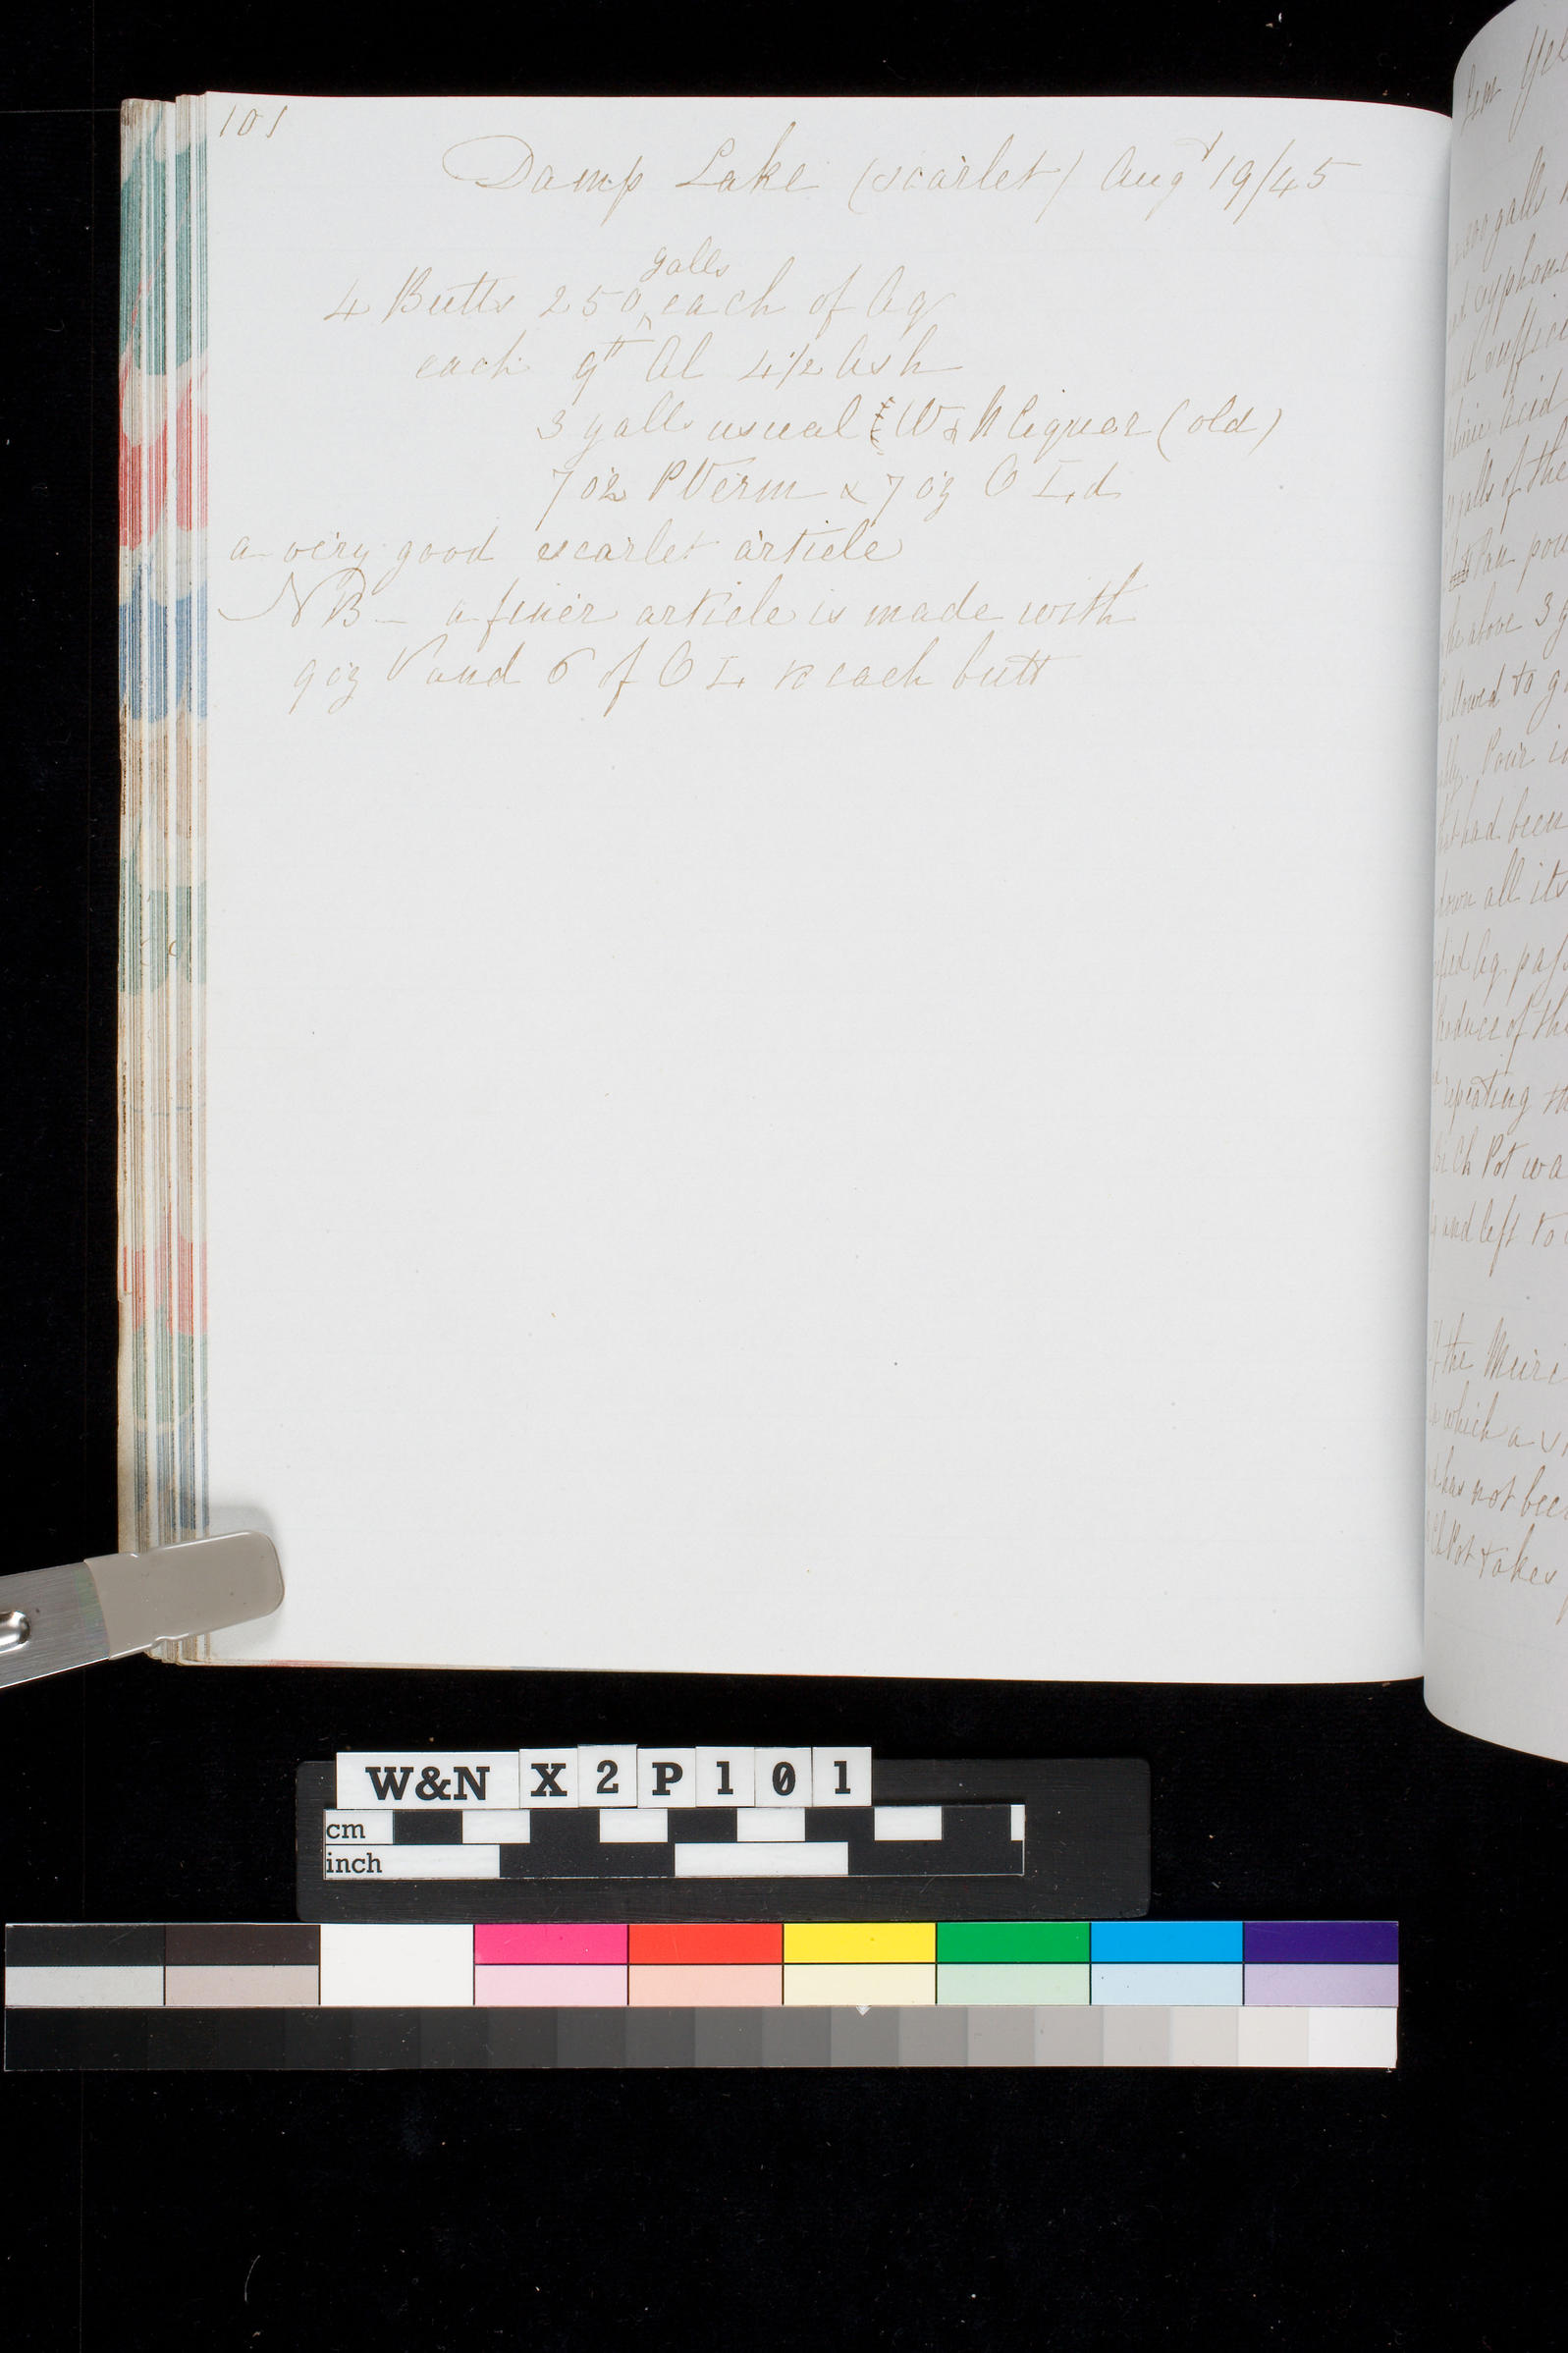 101
Damp Lake (scarlet) Augt 19/45
4 Butts 250 galls each of Aq
each 9lt Al 4 1/2 Ash
3 galls usual W & N liquor (old)
7 oz P Verm & 7 oz O I, d
a very good scarlet article
NB - a finer article is made with
9 oz V and 6 of O I, to each butt
200 galls
syphon
suffici
acid
galls of the
Pan pou
the above 3 g
allowed to g
Pour i
had been
down all its
Aq. pass
Produce of th
repeating th
Bi Ch Pot wa
and left to
of the Muri
which a
has not bee
Ch Pot takes
W&N X2P101
cm
inch